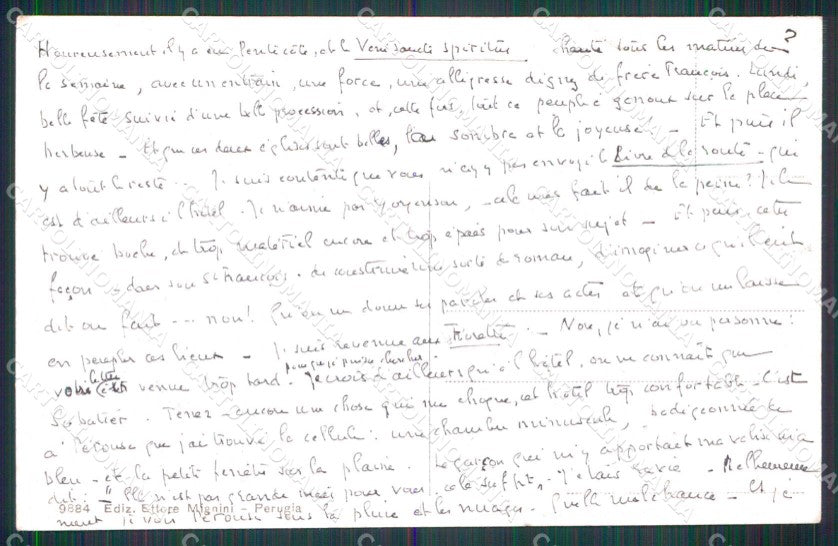 ?
Heureusement il y a eu Pentecôte, et le Veni sancte spiritus chanté sous les
la semaine, avec un entrain, une force, une allégresse digne de frère François. Lundi,
belle fête suivie d'une belle procession, et, cette fois, tout ce peuple à genoux sur la place
herbeuse - Et que ces deux églises sont belles, la sombre et la joyeuse - Et puis il
y a tout le reste. Je suis contente que vous n'ayez pas envoyé le Livre de la route - qui
est d'ailleurs à l'hôtel. Je n'aime pas Jorgensen, cela vous fait il de la peine? Je le
trouve et trop matériel encore et trop épais pour son sujet - Et puis, cette
façon - dans son St François - de une sorte de roman, d'imaginer ce qu'il eut
dit ou fait --- non! Qu'on me donne ses paroles et ses actes et qu'on me laisse
en peupler ces lieux - Je suis revenue aux Fioretti. - Non, je n'ai vu personne:
votre lettre venue trop tard pour que je puisse chercher. Je crois d'ailleurs qu'à l'hôtel, on ne connaît que
Sabatier. Tenez - encore une chose qui me choque, cet hôtel trop confortable - C'est
à Pérouse que j'ai trouvé la cellule: une chambre minuscule, badigeonnée de
bleu - et la petite fenêtre sur la plaine. Le garçon qui m'y apportait ma valise m'a
dit: "Elle n'est pas grande mais pour vous cela suffit". J'étais ravie - Malheureuse
ment je vois Pérouse sous la pluie et les nuages. Quelle malchance - Et je
9684 Ediz. Ettore Mignini - Perugia
CARTOLINOMANIA